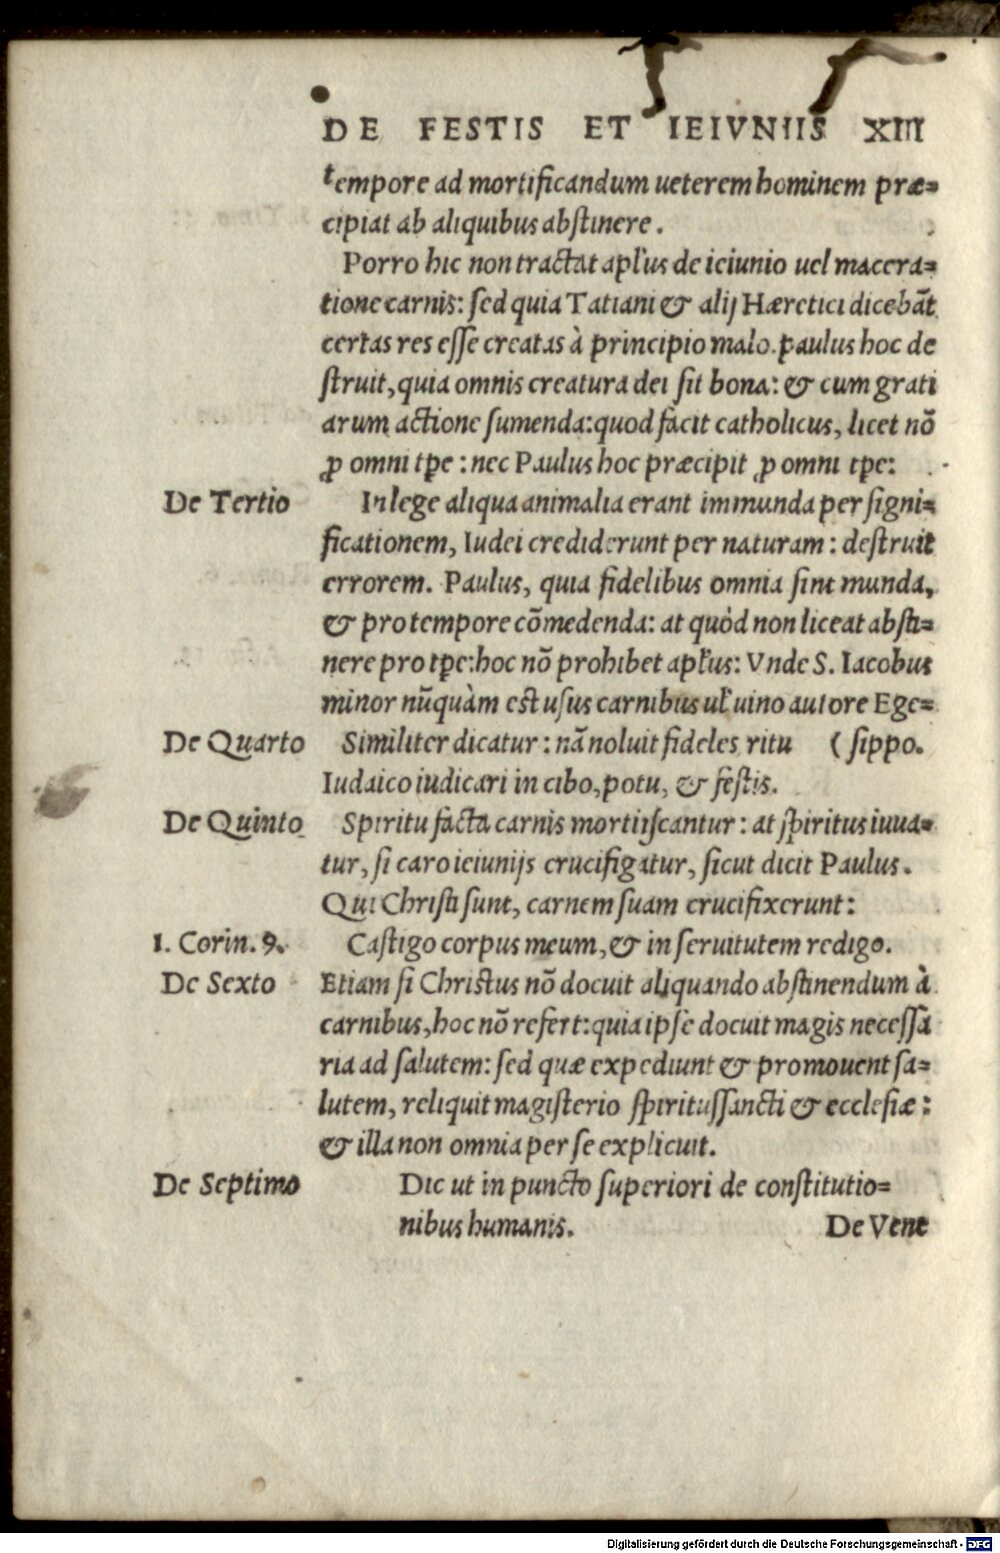 DE FESTIS ET IEIVNIIS XIII
tempore ad mortificandum ueterem hominem præ=
cipiat ab aliquibus abstinere.
Porro hic non tractat apl'us de ieiunio uel macera=
tione carnis: sed quia Tatiani & alij Hæretici dicebāt
certas res esse creatas à principio malo. paulus hoc de
struit, quia omnis creatura dei sit bona: & cum grati
arum actione sumenda: quod facit catholicus, licet nō
ꝓ omni tp̄e: nec Paulus hoc præcipit ꝓ omni tp̄e:
De Tertio In lege aliqua animalia erant immunda per signi=
ficationem, Iudei crediderunt per naturam: destruit
errorem. Paulus, quia fidelibus omnia sint munda,
& pro tempore cōmedenda: at quòd non liceat absti=
nere pro tp̄e: hoc nō prohibet apl'us: Vnde S. Iacobus
minor nūquàm est usus carnibus ul' uino autore Ege=
De Quarto Similiter dicatur: nā noluit fideles ritu ( sippo.
Iudaico iudicari in cibo, potu, & festis.
De Quinto Spiritu facta carnis mortifscantur: at spiritus iuua=
tur, si caro ieiunijs crucifigatur, sicut dicit Paulus.
Qui Christi sunt, carnem suam crucifixerunt:
1. Corin. 9. Castigo corpus meum, & in seruitutem redigo.
De Sexto Etiam si Christus nō docuit aliquando abstinendum à
carnibus, hoc nō refert: quia ipse docuit magis necessa
ria ad salutem: sed quæ expediunt & promouent sa=
lutem, reliquit magisterio spiritussancti & ecclesiæ:
& illa non omnia per se explicuit.
De Septimo Dic ut in puncto superiori de constitutio=
nibus humanis. De Vene
Digitalisierung gefördert durch die Deutsche Forschungsgemeinschaft - DFG